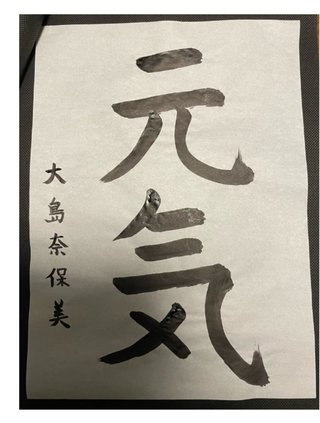 元気
大島奈保美